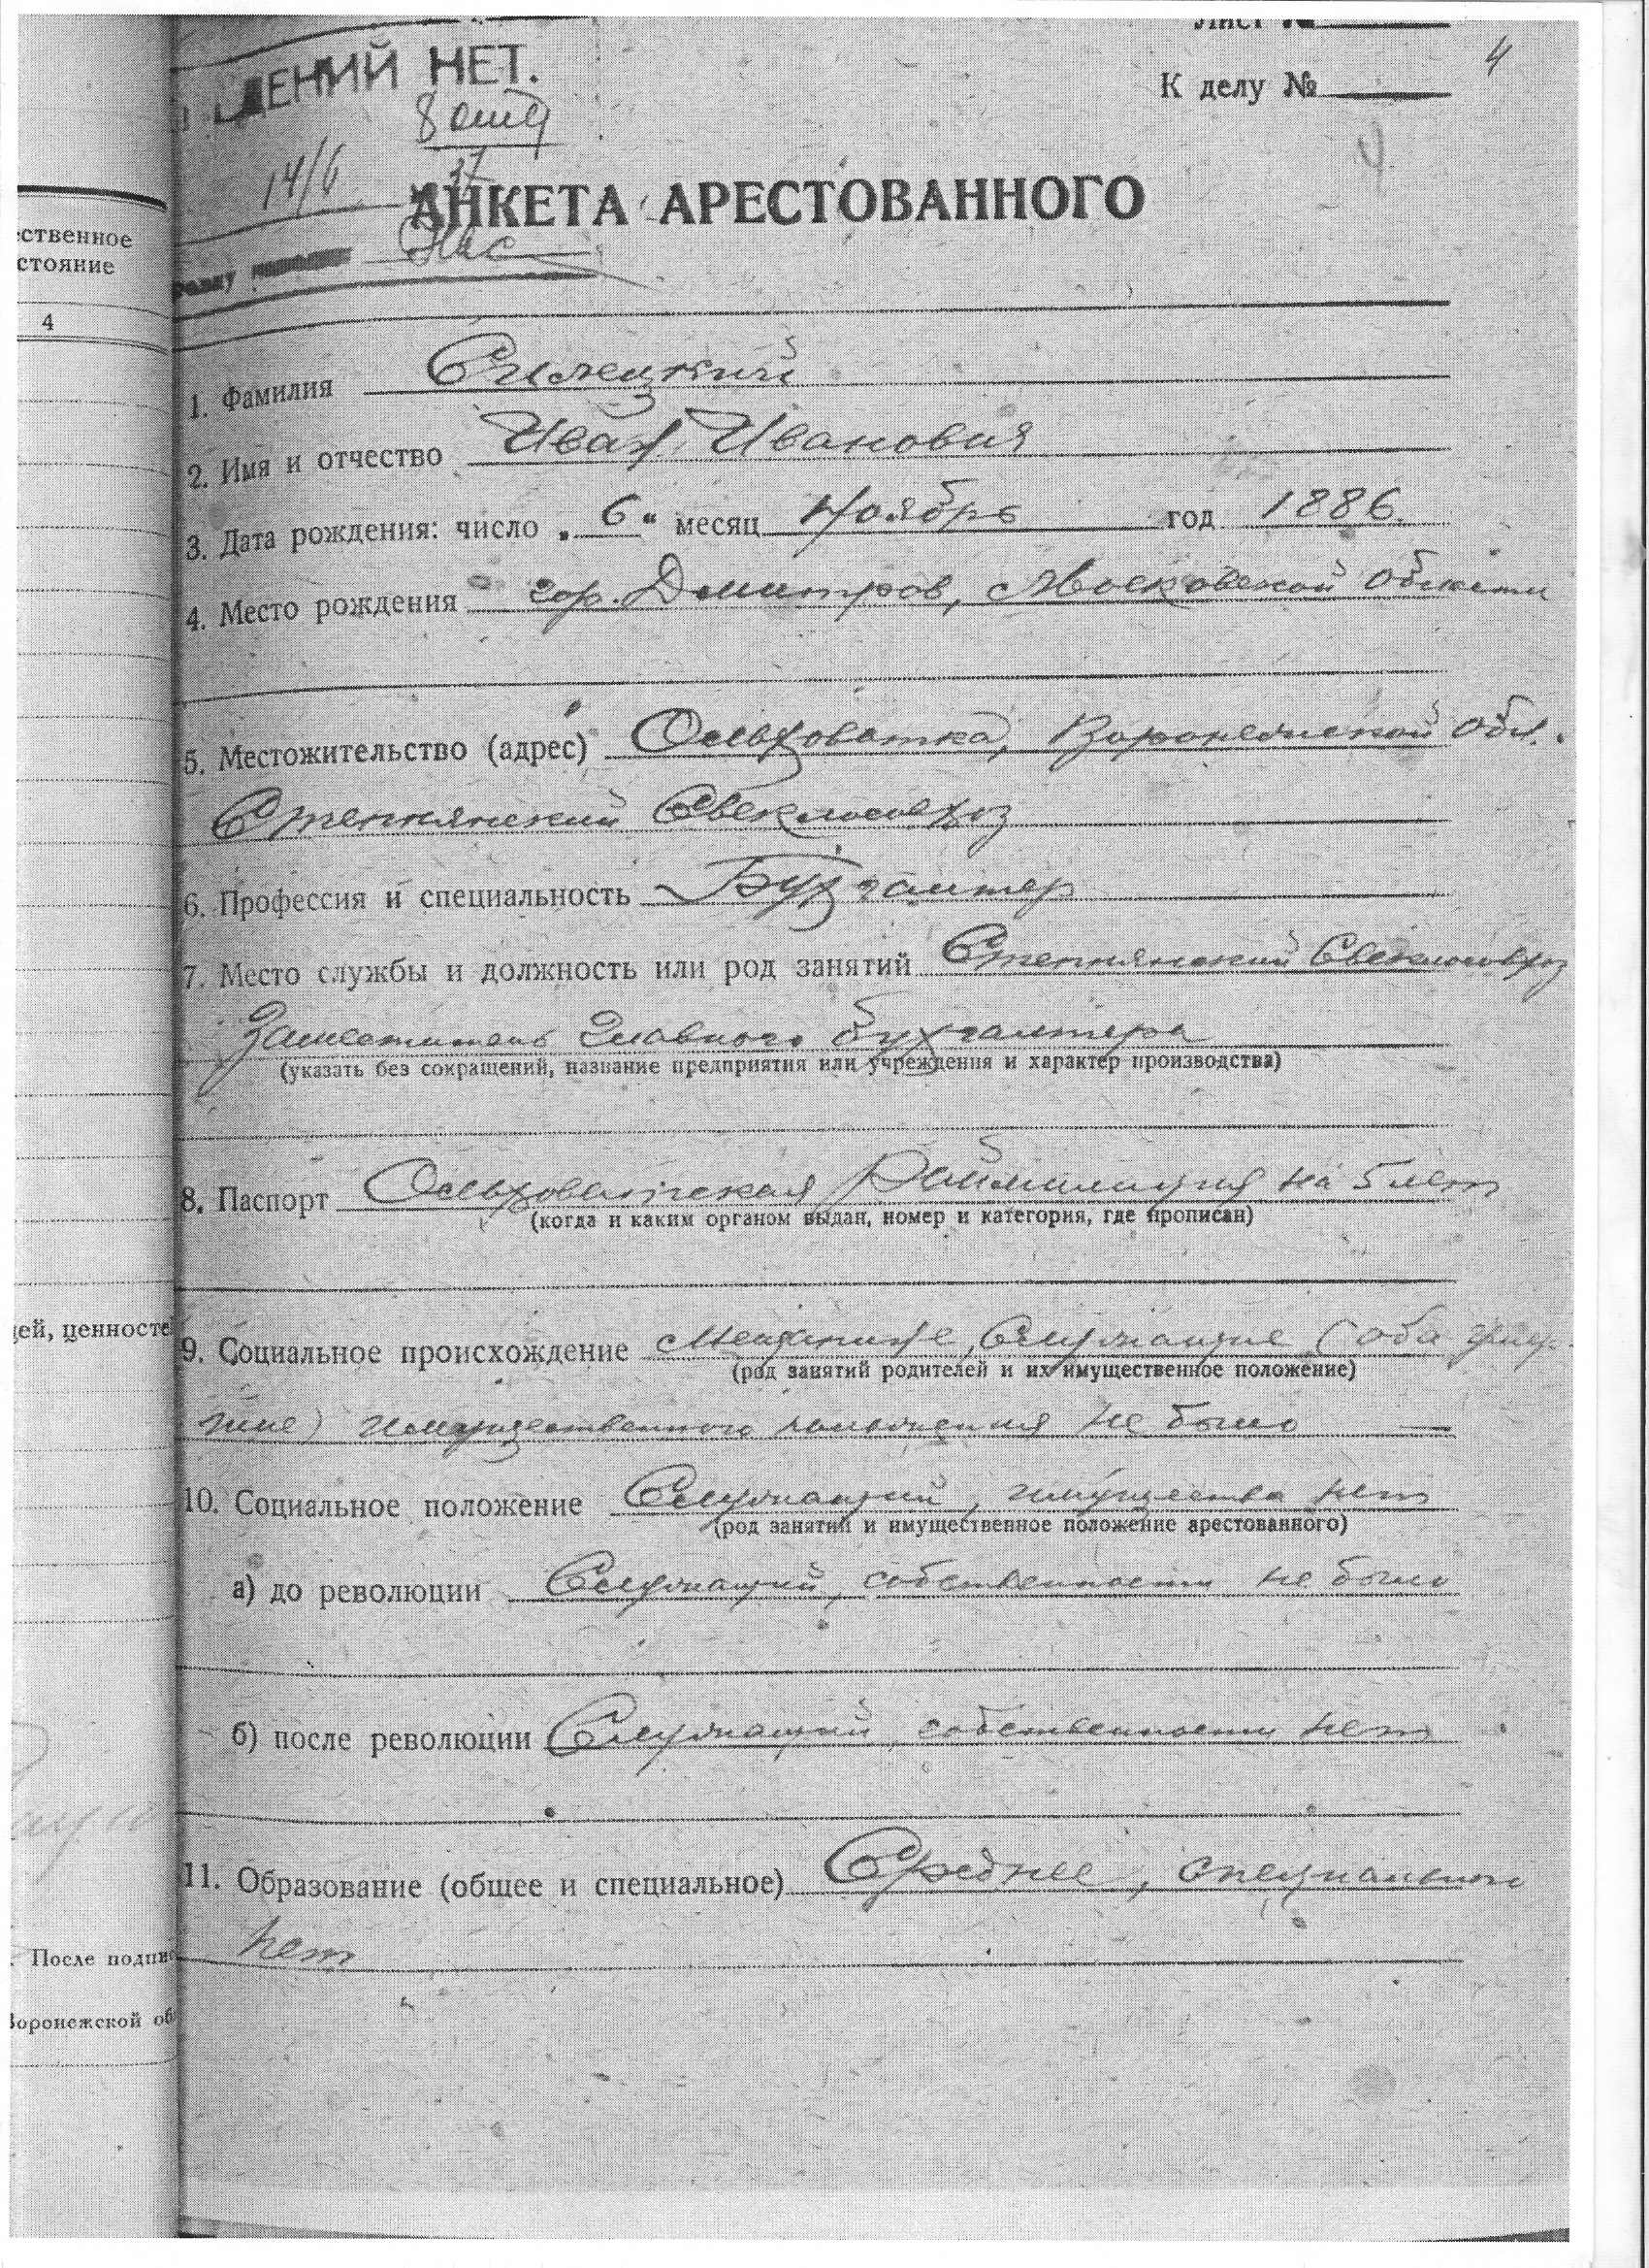 Лист №
4
ДЕНИЙ НЕТ.
К делу №
8 отд
14/6 37
4
АНКЕТА АРЕСТОВАННОГО
ственное
стояние
4
1. Фамилия
2. Имя и отчество Иван Иванович
3. Дата рождения: число „6“ месяц Ноябрь год 1886.
4. Место рождения гор. Дмитров, Московской области
5. Местожительство (адрес) Ольховатка, Воронежской обл.
Степнянский Свеклосовхоз
6. Профессия и специальность Бухгалтер
7. Место службы и должность или род занятий Степнянский Свеклосовхоз
Заместитель Главного бухгалтера
(указать без сокращений, название предприятия или учреждения и характер производства)
8. Паспорт Ольховатская Раймилиция на 5 лет
(когда и каким органом выдан, номер и категория, где прописан)
ей, ценносте
9. Социальное происхождение Мещане, Служащие (оба
(род занятий родителей и их имущественное положение)
имущественного положения не было
10. Социальное положение Служащий, имущества нет
(род занятий и имущественное положение арестованного)
а) до революции Служащий, собственности не было
б) после революции Служащий, собственности нет
11. Образование (общее и специальное) Среднее, специального
нет
После подпи
Воронежской об